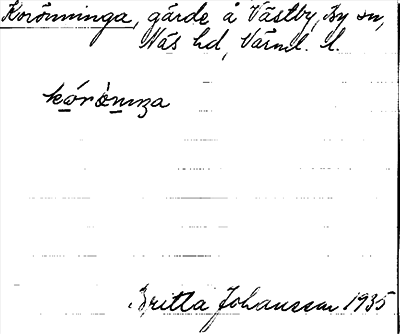 Korönninga, gärde å Västby, By sn,
Näs hd, Värml. l.
kó̱rò̱nıŋa
Britta Johansson 1935